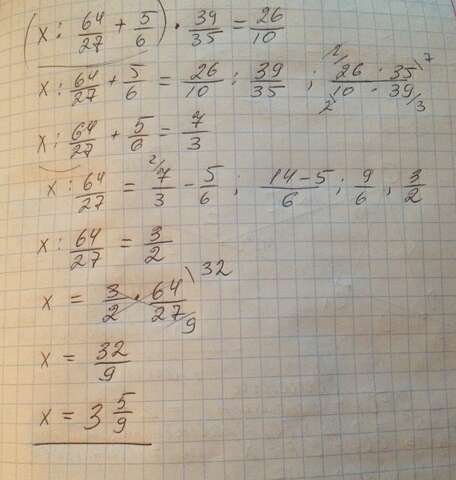 (x : 64/27 + 5/6) · 39/35 = 26/10
x : 64/27 + 5/6 = 26/10 : 39/35 ; 2/ 26 · 35 \7 / 2\ 10 · 39 /3
x : 64/27 + 5/6 = 7/3
x : 64/27 = 2/ 7/3 - 5/6 ; 14-5/6 ; 9/6 , 3/2
x : 64/27 = 3/2
x = 3/2 · 64/27 \32 /9
x = 32/9
x = 3 5/9